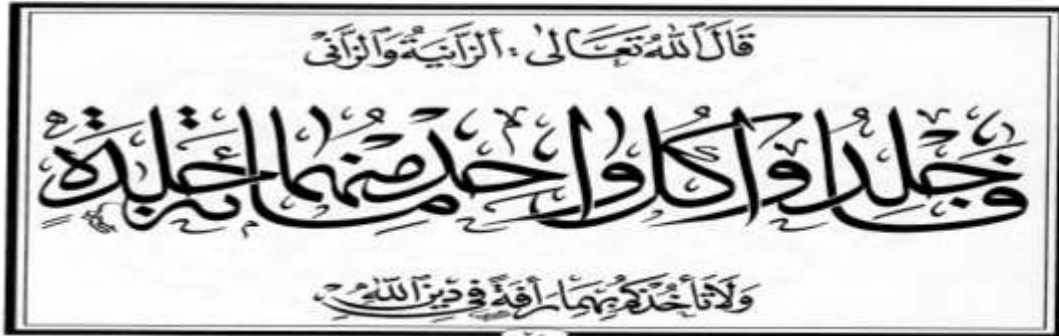 قَالَ ٱللّٰهُ تَعَالىٰ : ٱلزَّانِيَةُ وَٱلزَّانِى
فَٱجْلِدُوا۟ كُلَّ وَٰحِدٍ مِّنْهُمَا مِا۟ئَةَ جَلْدَةٍ
وَلَا تَأْخُذْكُم بِهِمَا رَأْفَةٌ فِى دِينِ ٱللّٰهِ